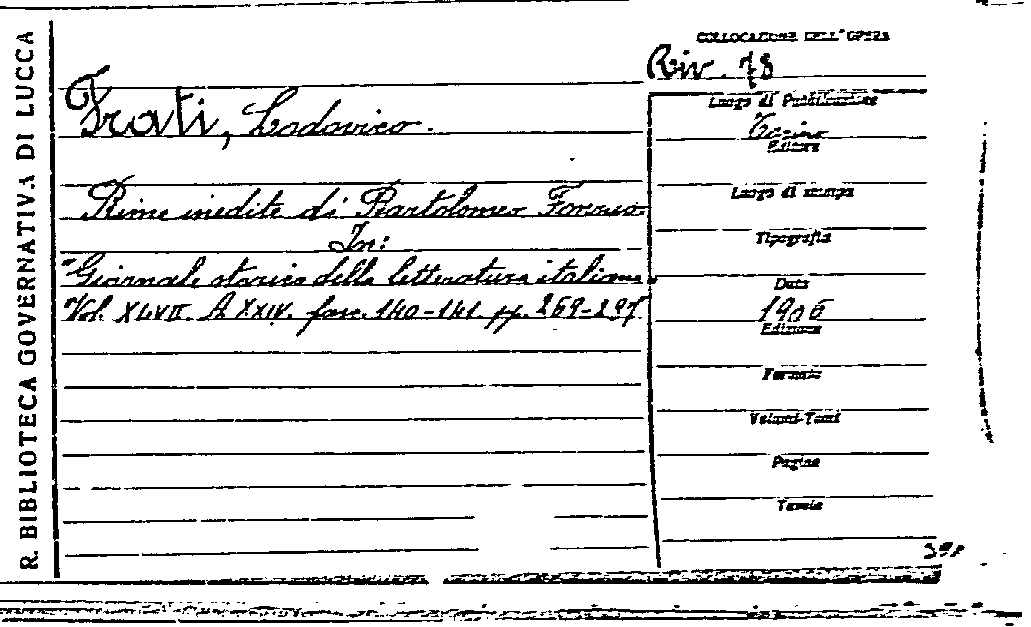 R. BIBLIOTECA GOVERNATIVA DI LUCCA
COLLOCAZIONE DELL'OPERA
Riv. 78
Frati, Lodovico.
Rime inedite di Bartolomeo
In:
"Giornale storico della letteratura italiana"
Vol. XLVII. A XXIV. fasc. 140-141. pp. 269-297
Luogo di Pubblicazione
Torino
Editore
Luogo di stampa
Tipografia
Data
1906
Edizione
Formato
Volumi-Tomi
Pagine
Tavole